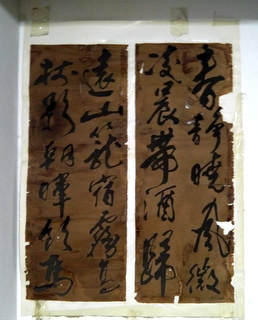 春靜曉風微
凌晨帶酒歸
遠山籠宿霧高
樹影朝暉飲馬